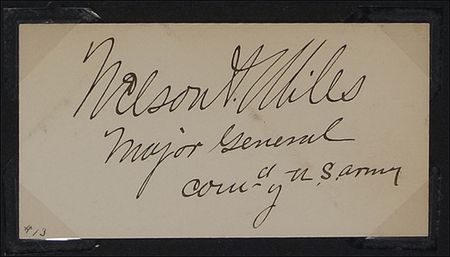 Nelson A. Miles
Major General
Com'd'g U.S. Army
#13